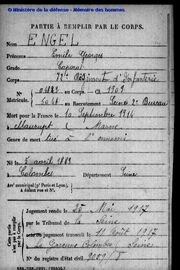 © Ministère de la défense - Mémoire des hommes
PARTIE À REMPLIR PAR LE CORPS.
Nom ENGEL
Prénoms Emile Georges
Grade Caporal
Corps 72e Régiment d'Infanterie
N° au Corps. — Cl. 1909
Matricule. au Recrutement Seine 2e Bureau
Mort pour la France le 10 Septembre 1914
à Maurupt (Marne)
Genre de mort tué à l'ennemi
Né le 3 avril 1889
à Colombes Département Seine
Arr' municipal (p' Paris et Lyon),
à défaut rue et N°.
Jugement rendu le 25 Mai 1917
par le Tribunal de la Seine
jugement transcrit le 11 Août 1917
à La Garenne Colombes (Seine)
N° du registre d'état civil